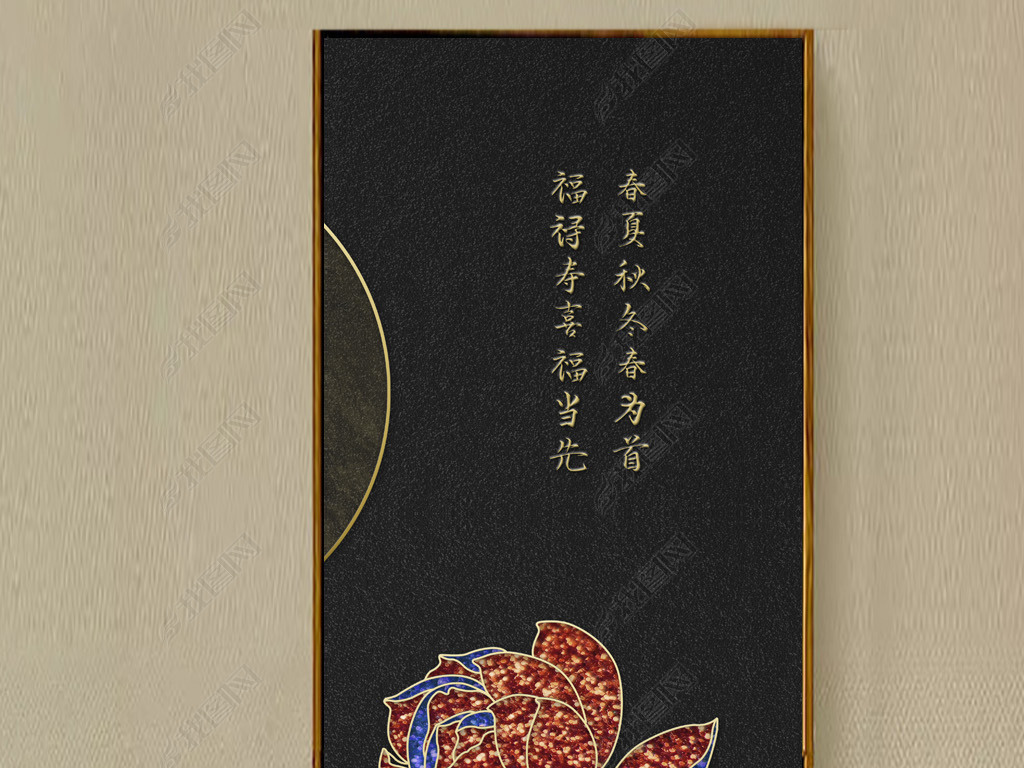 春夏秋冬春为首
福禄寿喜福当先